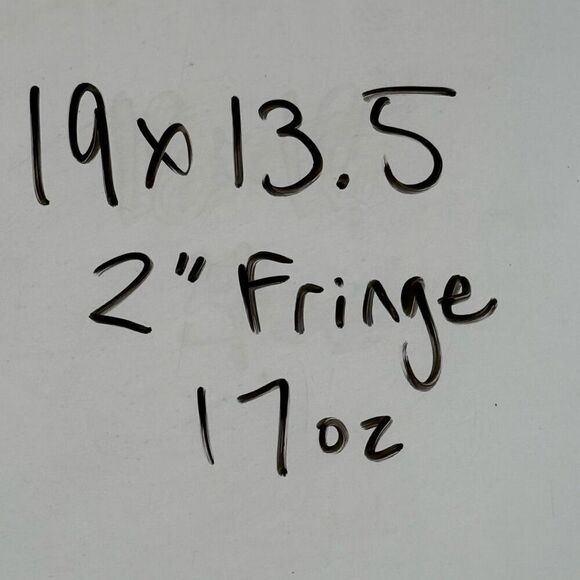 19x13.5
2" Fringe
17oz